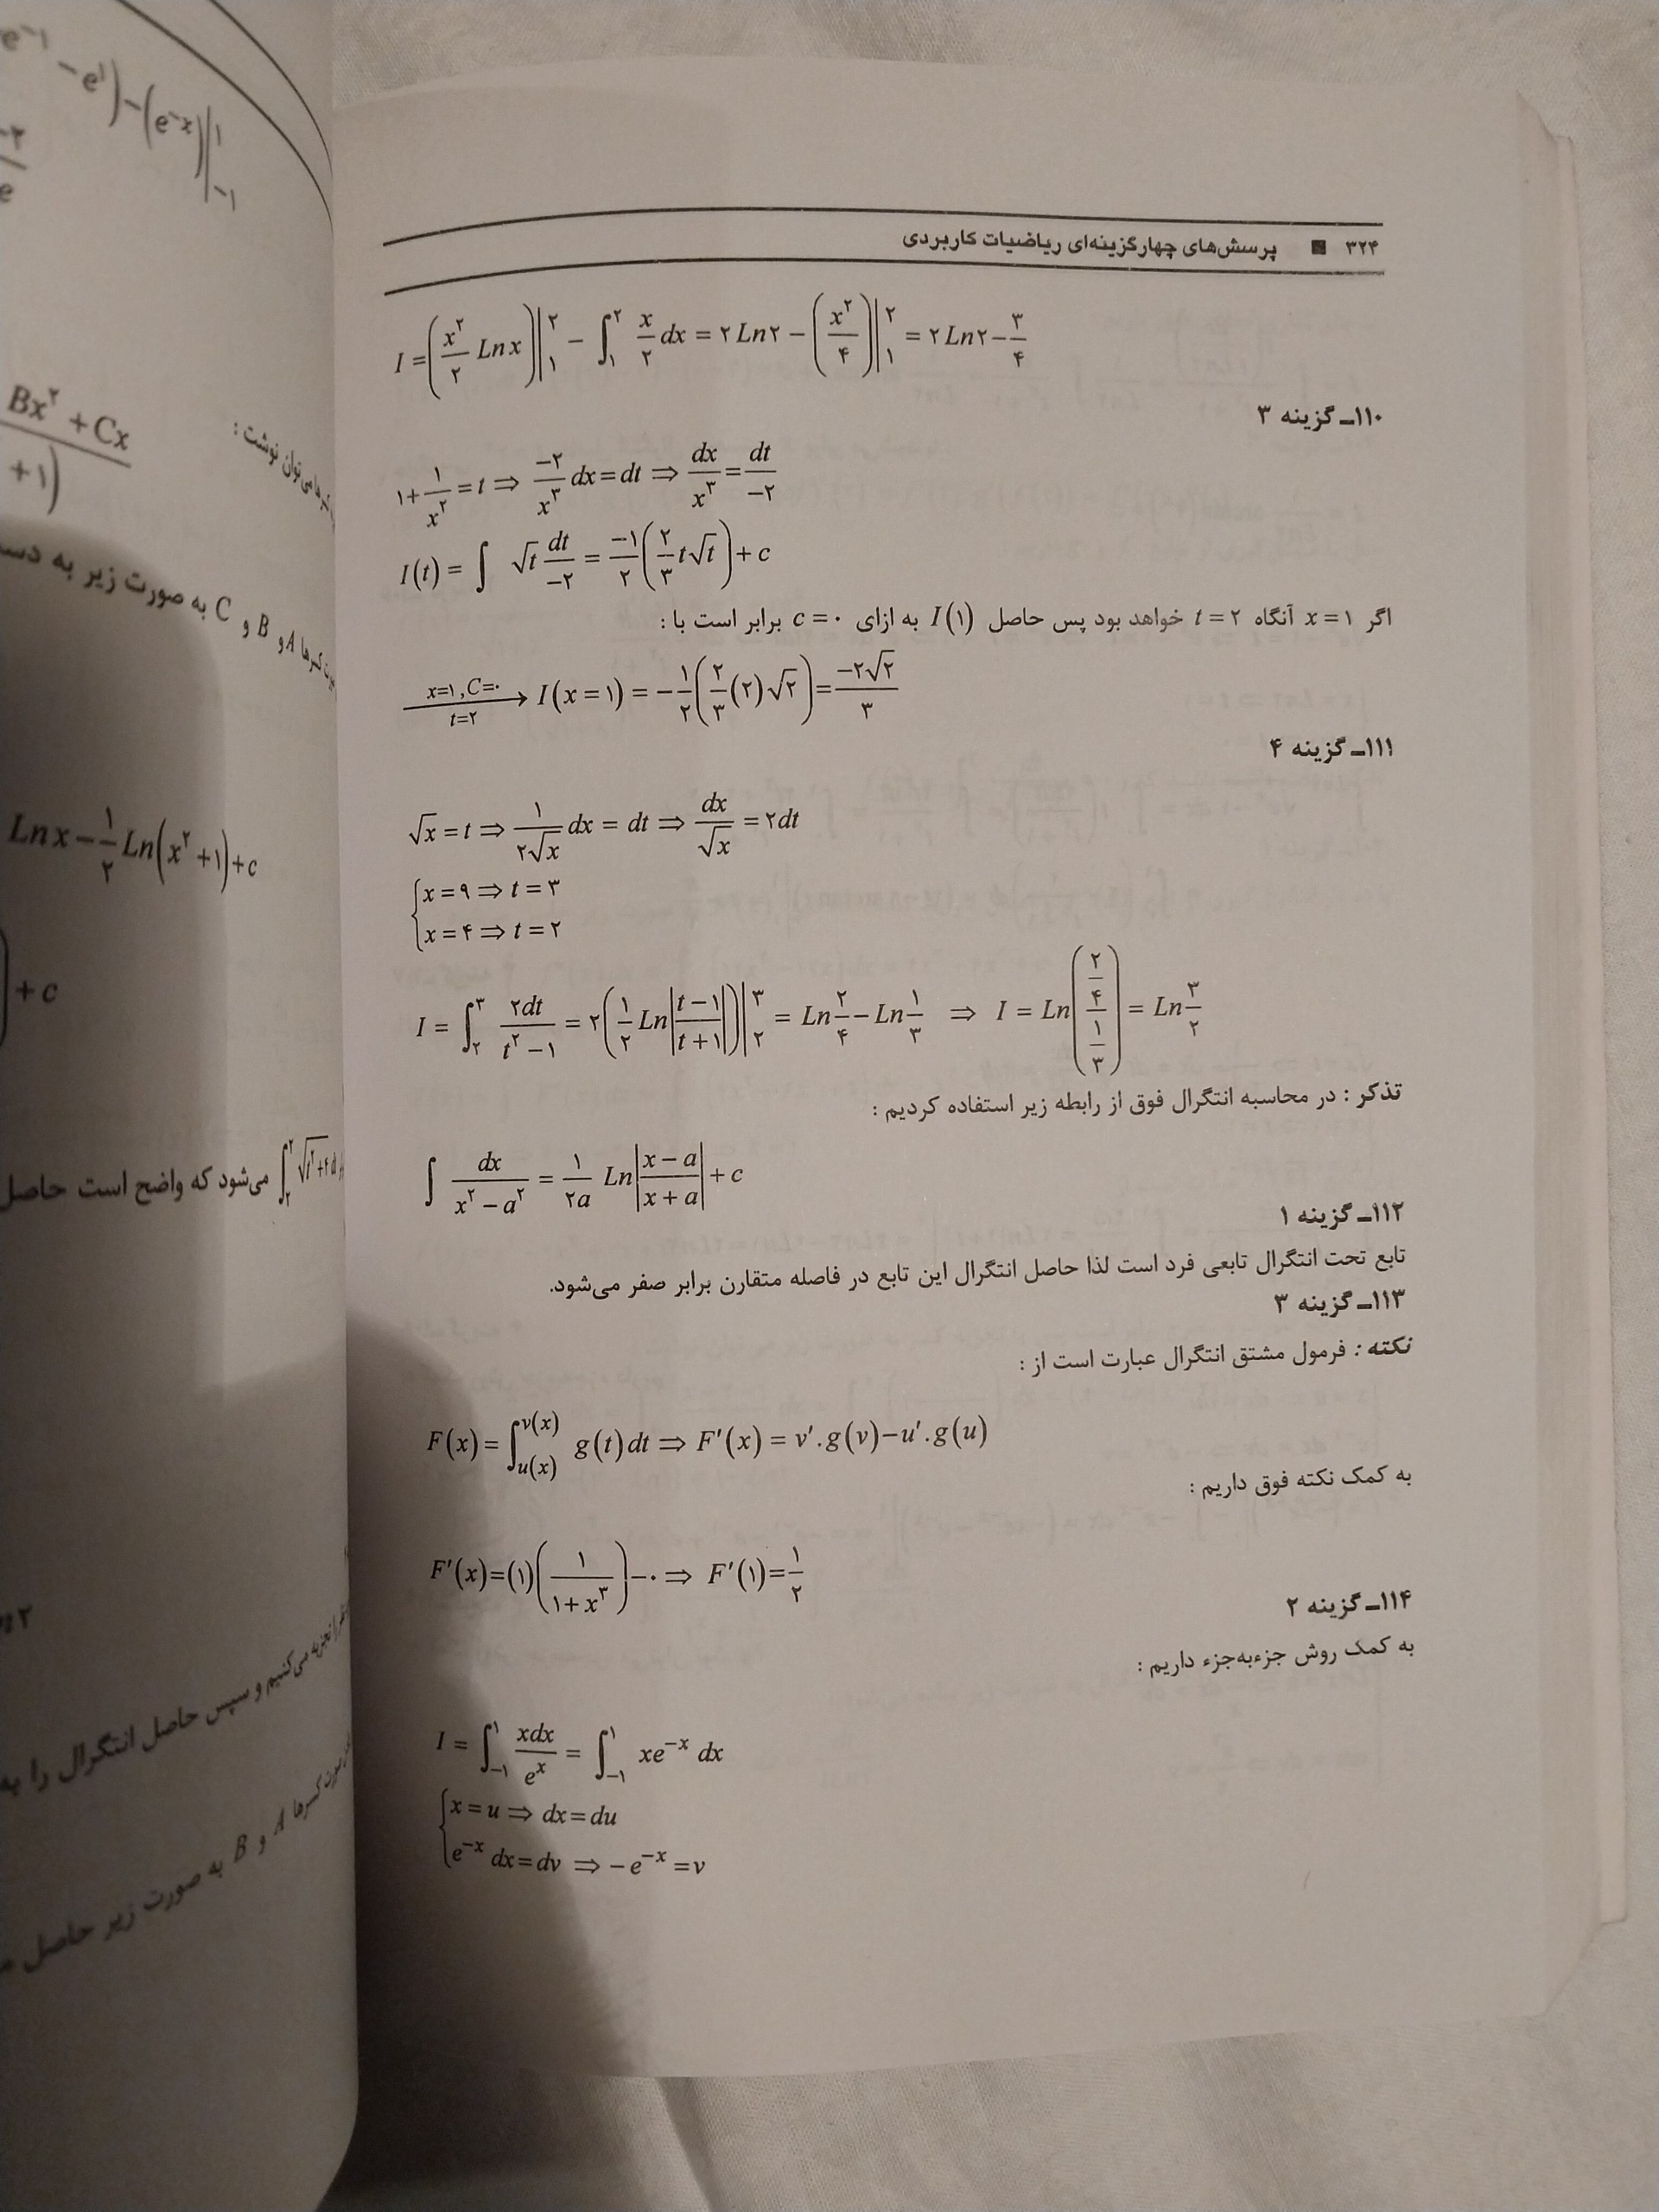 ۳۲۴ ■ پرسش‌های چهارگزینه‌ای ریاضیات کاربردی
I = (x^۲/۲ Ln x)|_۱^۲ − ∫_۱^۲ x/۲ dx = ۲Ln۲ − (x^۲/۴)|_۱^۲ = ۲Ln۲ − ۳/۴
۱۱۰ـ گزینه ۳
۱ + ۱/x^۲ = t ⇒ −۲/x^۳ dx = dt ⇒ dx/x^۳ = dt/−۲
I(t) = ∫ √t dt/−۲ = −۱/۲ (۲/۳ t√t) + c
اگر x = ۱ آنگاه t = ۲ خواهد بود پس حاصل I(۱) به ازای c = ۰ برابر است با :
x=۱, C=۰ / t=۲ → I(x = ۱) = −۱/۲ (۲/۳ (۲)√۲) = −۲√۲/۳
۱۱۱ـ گزینه ۴
√x = t ⇒ ۱/۲√x dx = dt ⇒ dx/√x = ۲dt
{ x = ۹ ⇒ t = ۳
x = ۴ ⇒ t = ۲
I = ∫_۲^۳ ۲dt/(t^۲ − ۱) = ۲(۱/۲ Ln|(t − ۱)/(t + ۱)|)|_۲^۳ = Ln ۲/۴ − Ln ۱/۳ ⇒ I = Ln((۲/۴)/(۱/۳)) = Ln ۳/۲
تذکر : در محاسبه انتگرال فوق از رابطه زیر استفاده کردیم :
∫ dx/(x^۲ − a^۲) = ۱/۲a Ln|(x − a)/(x + a)| + c
۱۱۲ـ گزینه ۱
تابع تحت انتگرال تابعی فرد است لذا حاصل انتگرال این تابع در فاصله متقارن برابر صفر می‌شود.
۱۱۳ـ گزینه ۳
نکته : فرمول مشتق انتگرال عبارت است از :
F(x) = ∫_u(x)^v(x) g(t)dt ⇒ F′(x) = v′.g(v) − u′.g(u)
به کمک نکته فوق داریم :
F′(x) = (۱)(۱/(۱ + x^۳)) − ۰ ⇒ F′(۱) = ۱/۲
۱۱۴ـ گزینه ۲
به کمک روش جزءبه‌جزء داریم :
I = ∫_−۱^۱ xdx/e^x = ∫_−۱^۱ xe^−x dx
{ x = u ⇒ dx = du
e^−x dx = dv ⇒ −e^−x = v
− e^۱) − (e^−x)|_−۱^۱
Bx^۲ + Cx
+۱)
توان نوشت :
A و B و C به صورت زیر به
Ln x − ۱/۲ Ln(x^۲ + ۱) + c
) + c
می‌شود که واضح است حاصل
می‌کنیم و سپس حاصل انتگرال را
A و B به صورت زیر حاصل